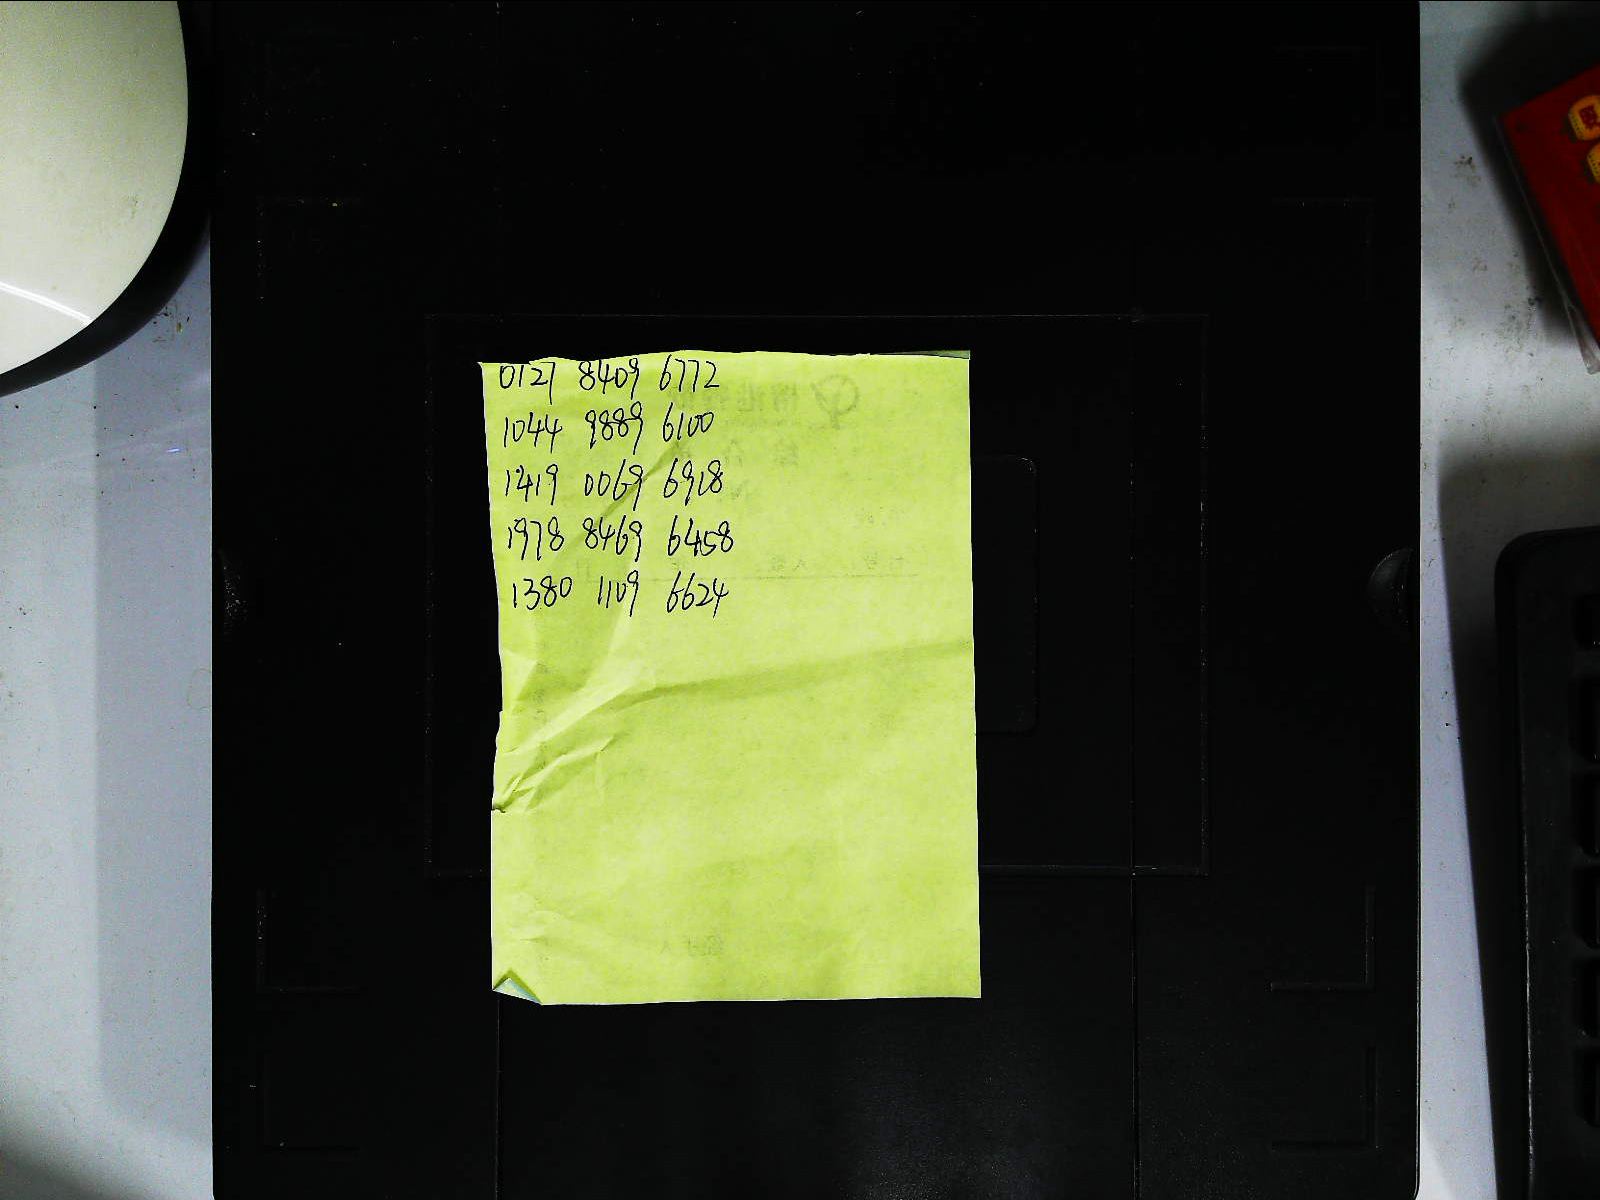 0127 8409 6772
1044 9889 6100
1419 0069 6918
1978 8469 6458
1380 1109 6624